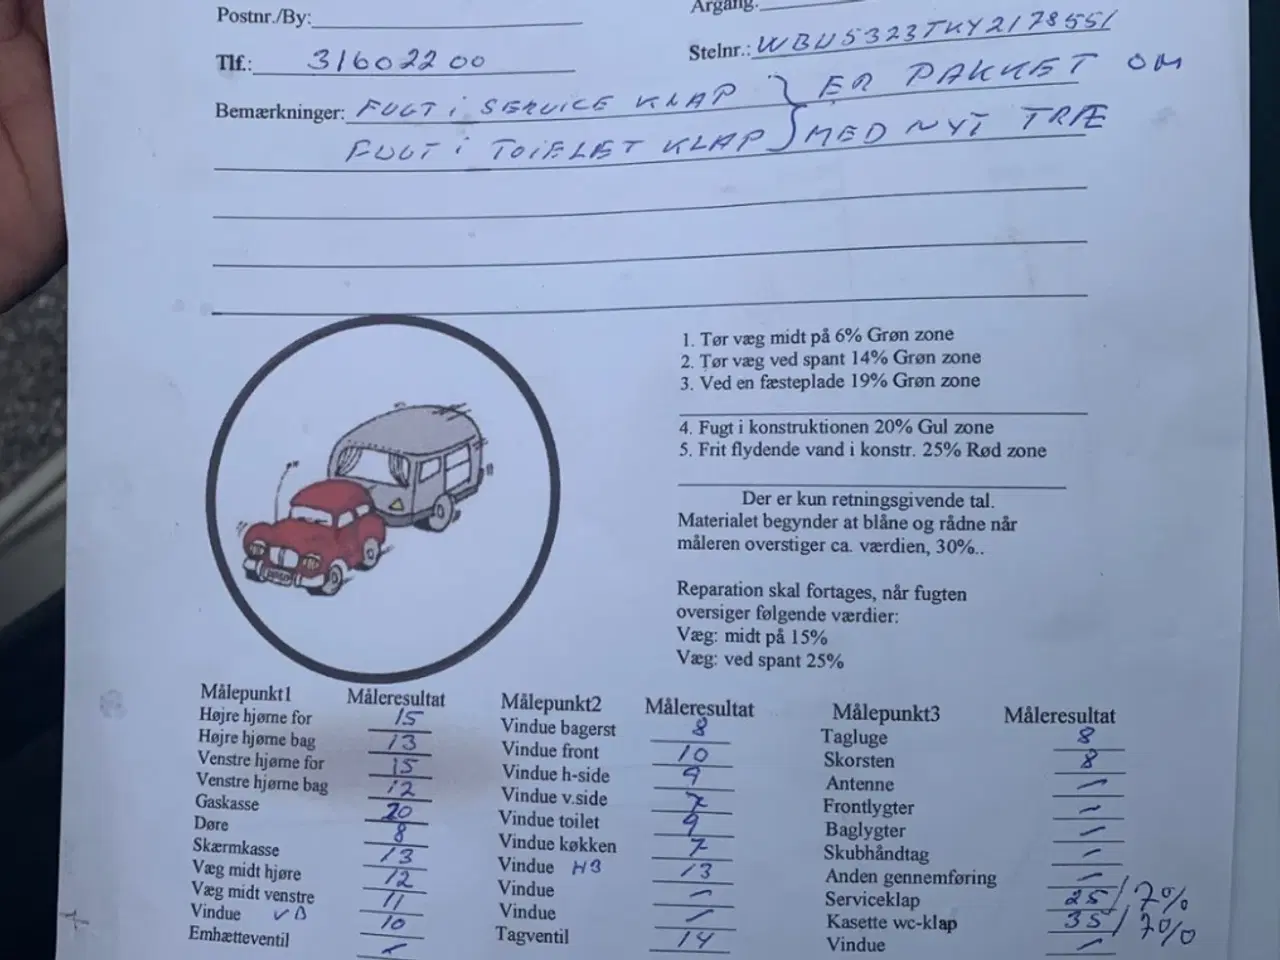 Postnr./By:
Årgang:
Tlf.: 31602200
Stelnr.: WBU5323TKY2178551
Bemærkninger: FUGT i SERVICE KLAP } ER PAKKET OM
FUGT i TOIELET KLAP } MED NYT TRÆ
1. Tør væg midt på 6% Grøn zone
2. Tør væg ved spant 14% Grøn zone
3. Ved en fæsteplade 19% Grøn zone
4. Fugt i konstruktionen 20% Gul zone
5. Frit flydende vand i konstr. 25% Rød zone
Der er kun retningsgivende tal.
Materialet begynder at blåne og rådne når
måleren overstiger ca. værdien, 30%..
Reparation skal fortages, når fugten
oversiger følgende værdier:
Væg: midt på 15%
Væg: ved spant 25%
Målepunkt1 Måleresultat
Højre hjørne for 15
Højre hjørne bag 13
Venstre hjørne for 15
Venstre hjørne bag 12
Gaskasse 20
Døre 8
Skærmkasse 13
Væg midt højre 12
Væg midt venstre 11
Vindue VB 10
Emhætteventil -
Målepunkt2 Måleresultat
Vindue bagerst 8
Vindue front 10
Vindue h-side 9
Vindue v.side 7
Vindue toilet 9
Vindue køkken 7
Vindue HB 13
Vindue -
Vindue -
Tagventil 14
Målepunkt3 Måleresultat
Tagluge 8
Skorsten 8
Antenne -
Frontlygter -
Baglygter -
Skubhåndtag -
Anden gennemføring -
Serviceklap 25 / 7%
Kasette wc-klap 35 / 7%
Vindue -